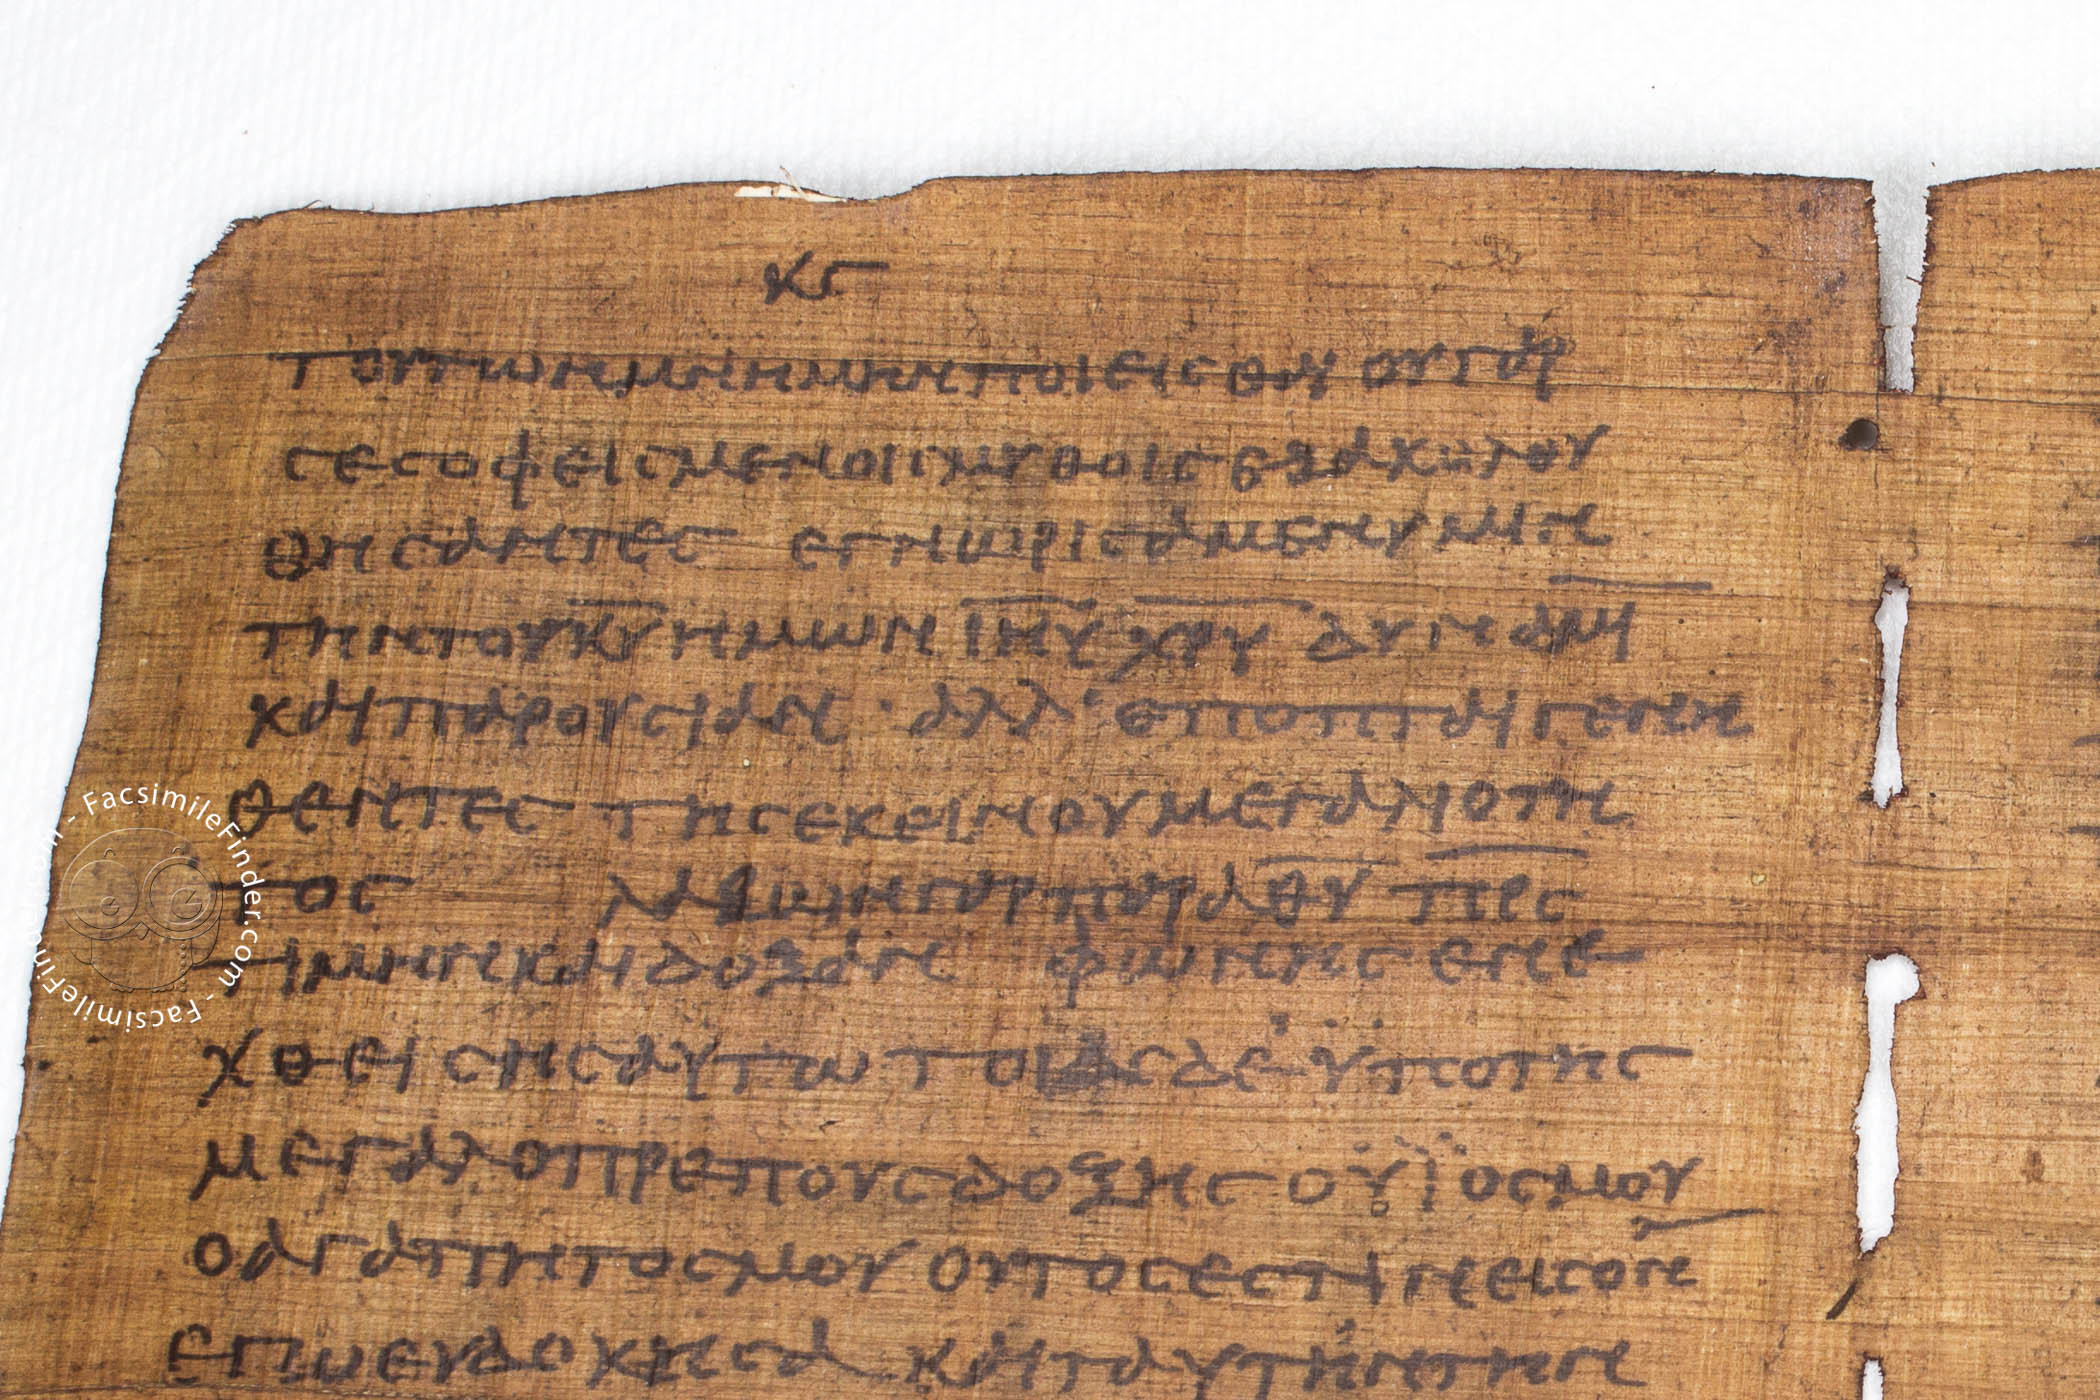 κϛ
τουτωνμνημηνποιεισθαι ουγαρ
σεσοφεισμενοισμυθοις εξακολου
θησαντες εγνωρισαμενυμιν
τηντουκ̅υ̅ημωνι̅η̅υ̅χ̅ρ̅υ̅ δυναμι̅
καιπαρουσιαν · αλλ’ εποπταιγενη
θεντες τησεκεινουμεγαλιοτη
τος λαβωνγαρπαραθ̅υ̅ π̅ρ̅ς̅
τιμηνκαιδοξαν φωνησενε
χθεισησαυτωτοιασδεϋποτης
μεγαλοπρεπουσδοξησοϋϊοσμου
οαγαπητοσμουουτοσεστινεισον
εγωευδοκησα καιταυτηντην
FacsimileFinder.com - FacsimileFinder.com -